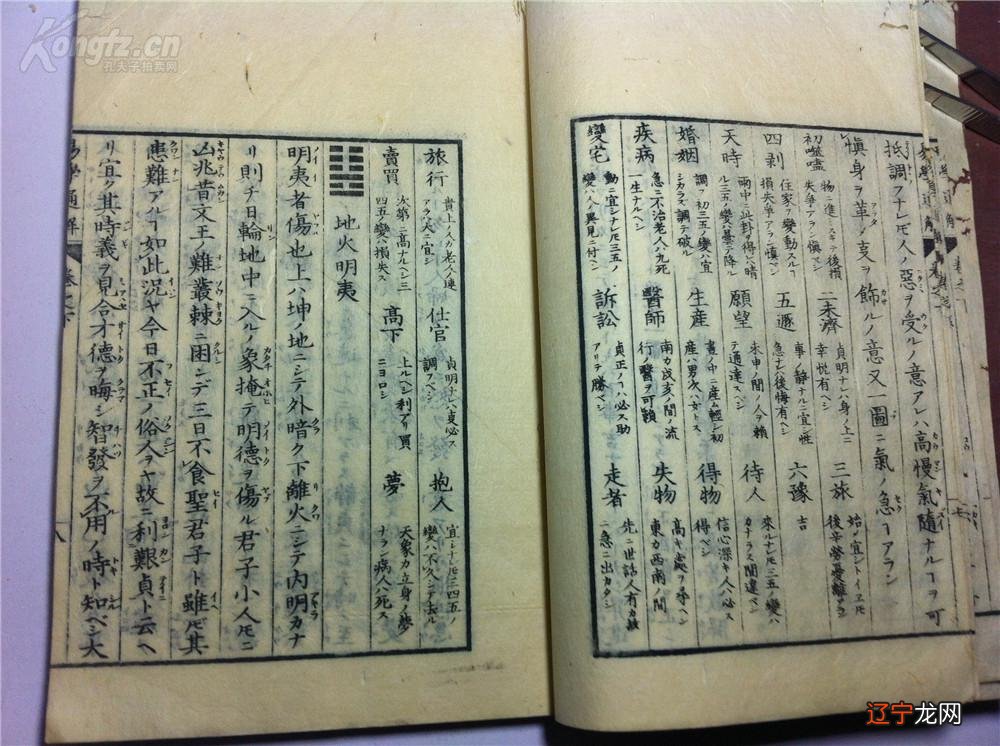 抵調フナレ𪜈人ノ惡ヲ受ルノ意アレハ高慢氣隨ナルヿヲ可
愼身ヲ革ノ支ヲ飾ルノ意又一圖ニ氣ノ急ヿアラン
初噬嗑
物ニ進ミスキテ後損
失爭アラン愼ベシ
二未濟
貞明ナレハ身ノ上ニ
幸悦有ベシ
三旅
始ノ宜シトイヱ𪜈
後辛勞憂離アラン
四剥
住家ヲ變動スルヿ
損失爭アラン愼ベシ
五遯
事ノ静ナルニ宜シ性
急ナレハ後悔有ベシ
六豫
吉
天時
雨中ニ此卦ヲ得レハ晴
ル三五ノ變ハ曇テ降ル
願望
未申ノ間ノ人ヲ頼
テ通達スベシ
待人
來ルナレ𪜈三五ノ變ハ
カナラス間違ベシ
婚姻
調フ初三五ノ變ハ宜
シカラズ調テ破ル
生産
晝ノ中ニ産ム輕シ初
産ハ男次ハ女トス
得物
信心深キ人ハ必ス
得ベシ
疾病
急ニ不治老人ハ九死
一生ナルヘシ
醫師
南カ戌亥ノ間ノ流
行ノ醫ヲ可頼
失物
高キ處ヲ尋ヘシ
東カ西南ノ間
變宅
動ニ宜シナレ𪜈三五ノ
變ハ人ノ異見ニ付ヘシ
訴訟
貞正ノヿハ必ス助
アリテ勝ベシ
走者
先ニ世話人有カ故
ニ急ニ出カタシ
旅行
貴上ノ人カ老人ノ連
アラハ大ニ宜シ
仕官
貞明ナレハ支必ス
調フベシ
抱人
宜シナレ𪜈三四五ノ
變ハ不久シテ去ル
賣買
次第ニ高ナルヘシ三
四五ノ變ハ損失ス
高下
上ルヘシ利アリ買
ニヨロシ
夢
天象カ立身ノ夢
ナラン病人ハ死ス
地火明夷
明夷者傷也上ハ坤ノ地ニシテ外暗ク下離火ニシテ内明カナ
リ則チ日輪地中ニ入ルノ象掩テ明德ヲ傷ル君子小人𪜈ニ
凶兆昔文王ノ難叢棘ニ困ンデ三日不食聖君子ト雖𪜈其
患難アルヿ如此況ヤ今日不正ノ俗人ヲヤ故ニ利艱貞ト云ヘ
リ宜ク其時義ヲ見合才德ヲ晦シ智發ヲ不用ノ時ト知ベシ大
易學通解
卷之下
八
Kongfz.cn
孔夫子拍卖网
辽宁龙网